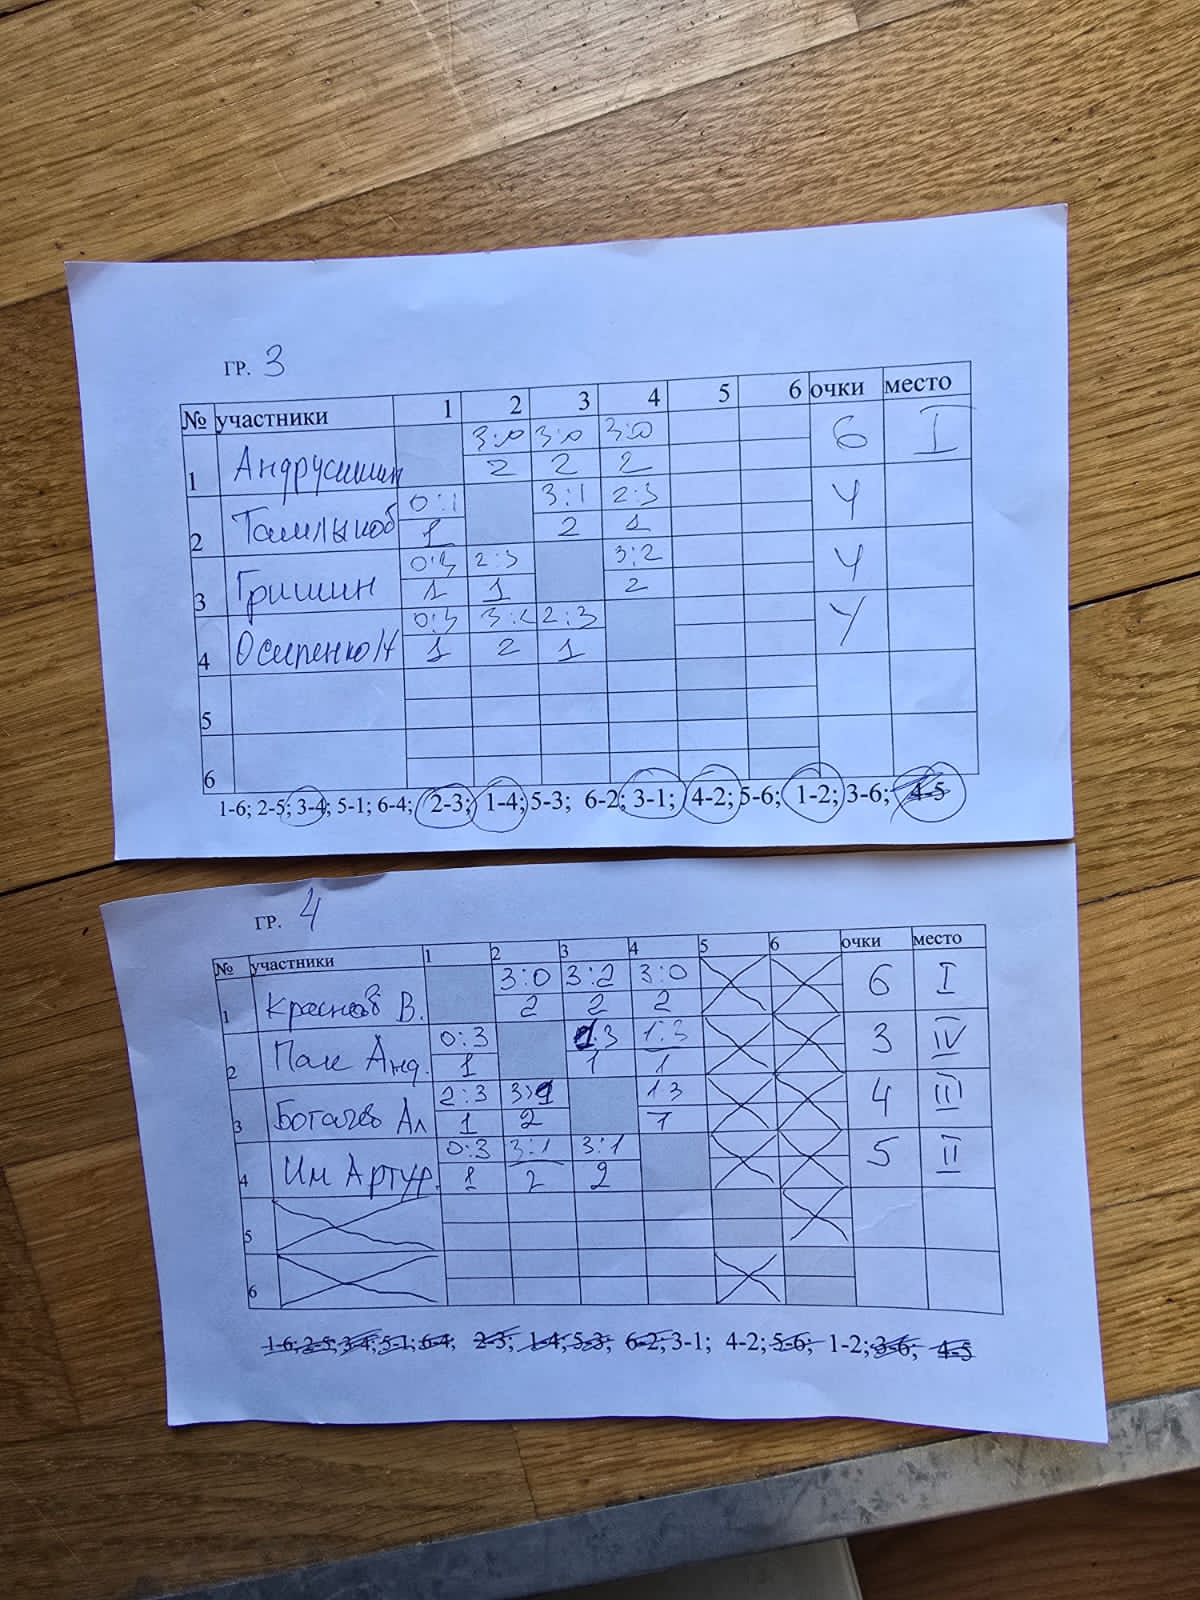 ГР. 3
№ участники 1 2 3 4 5 6 очки место
1 Андрусишин 3:0 3:0 3:0 6 I
2 2 2
2 0:1 3:1 2:3 4
1 2 1
3 Гришин 0:3 2:3 3:2 4
1 1 2
4 Осипенко Н 0:3 3:2 2:3 4
1 2 1
5
6
1-6; 2-5; 3-4; 5-1; 6-4; 2-3; 1-4; 5-3; 6-2; 3-1; 4-2; 5-6; 1-2; 3-6; 4-5
ГР. 4
№ участники 1 2 3 4 5 6 очки место
1 Краснов В. 3:0 3:2 3:0 6 I
2 2 2
2 Пак Анд. 0:3 1:3 1:3 3 IV
1 1 1
3 Богачёв Ал 2:3 3:1 1 3 4 III
1 2 1
4 Им Артур. 0:3 3:1 3:1 5 II
1 2 2
5
6
1-6; 2-5; 3-4; 5-1; 6-4; 2-3; 1-4; 5-3; 6-2; 3-1; 4-2; 5-6; 1-2; 3-6; 4-5